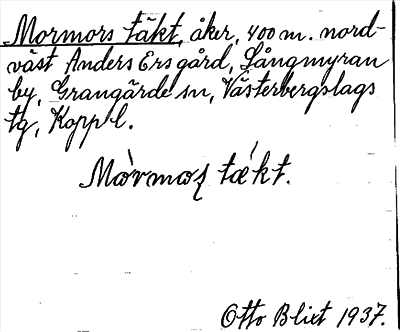 Mormors täkt, åker, 400 m. nord-
väst Anders Ers gård, Långmyran
by, Grangärde sn, Västerbergslags
tg, Kopp l.
Mòrmoʂ tǽkt.
Otto Blixt 1937.